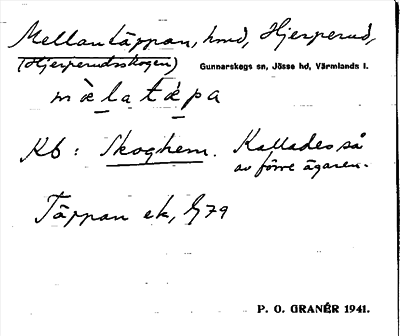 Mellantäppan, hmd, Hjerperud,
(Hjerperudsskogen) Gunnarskogs sn, Jösse hd, Värmlands l.
mæ̀latæ̀pa
Kb: Skoghem. Kallades så
av förre ägaren.
Täppan ek, G79
P. O. GRANÉR 1941.